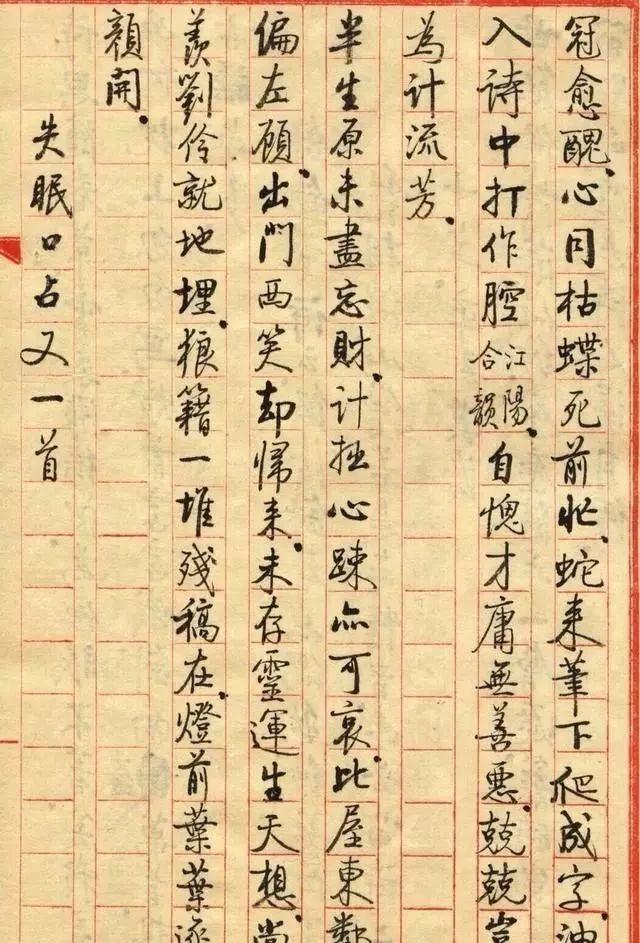 冠愈醜心同枯蝶死前忙蛇来筆下爬成字油
入詩中打作腔江陽合韻自愧才庸無善惡兢兢豈
為計流芳
半生原未盡忘財計拙心踈亦可哀比屋東鄰
偏左顧出門西笑却帰来未存靈運生天想尚
羨劉伶就地埋狼籍一堆殘稿在燈前葉葉逐
顏開
失眠口占又一首